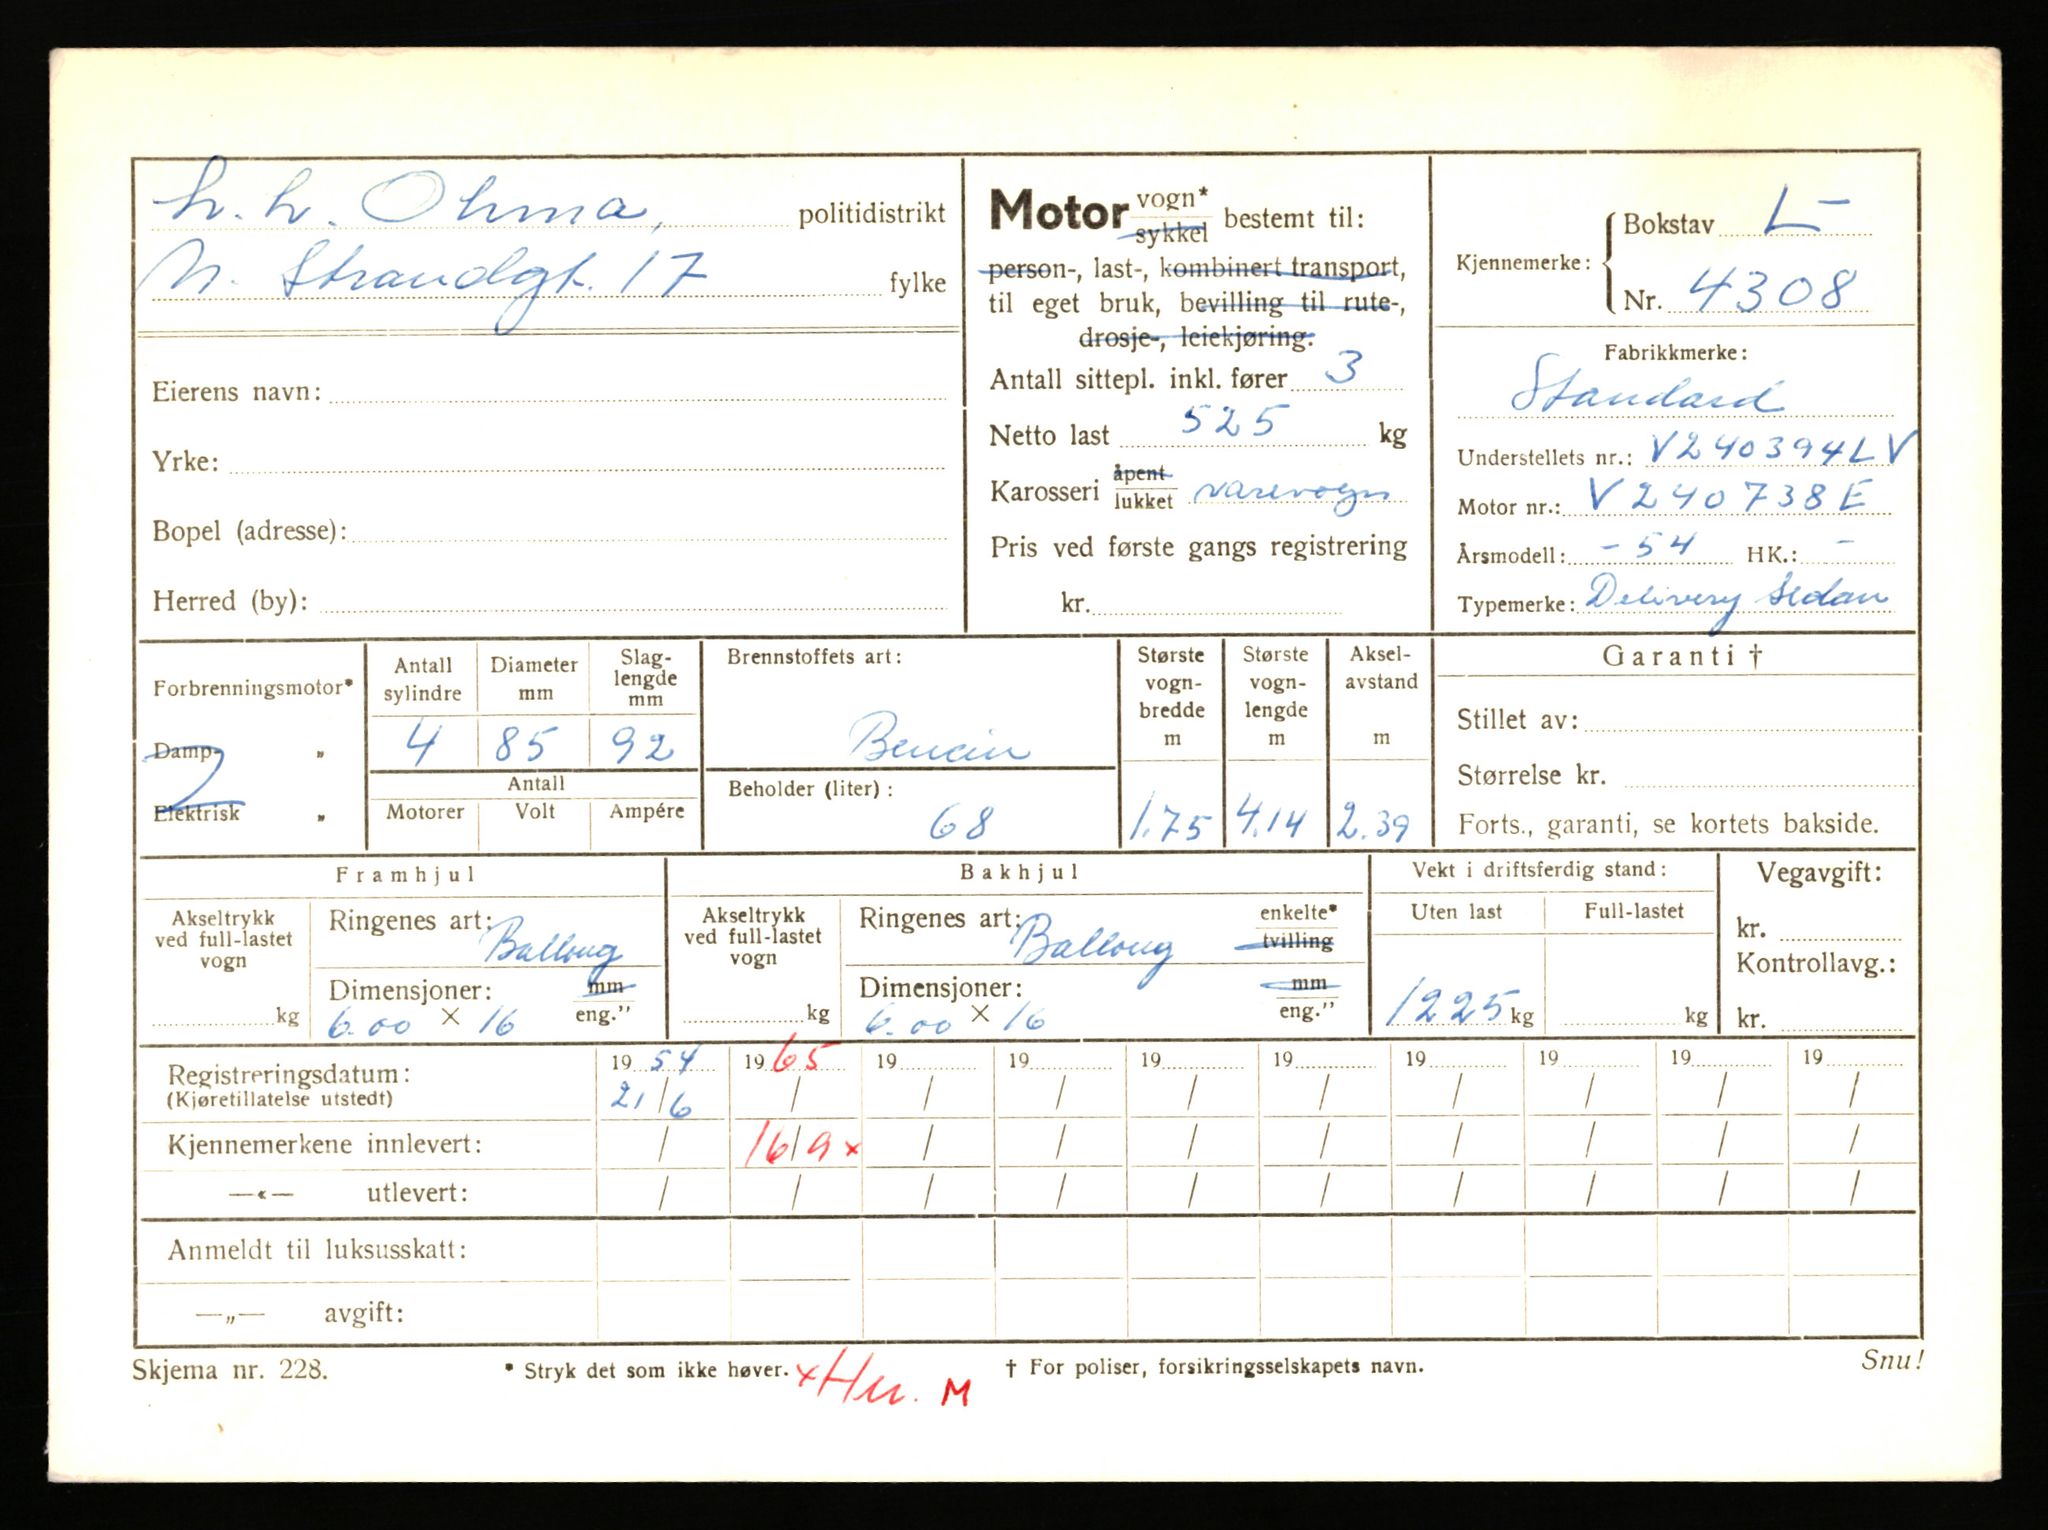 L. L. Ohma, politidistrikt
N. Strandgt. 17 fylke
Eierens navn:
Yrke:
Bopel (adresse):
Herred (by):
Motor vogn* sykkel bestemt til:
person-, last-, kombinert transport,
til eget bruk, bevilling til rute-,
drosje-, leiekjøring.
Antall sittepl. inkl. fører 3
Netto last 525 kg
Karosseri åpent lukket varevogn
Pris ved første gangs registrering
kr.
Kjennemerke: Bokstav L-
Nr. 4308
Fabrikkmerke:
Standard
Understellets nr.: V240394LV
Motor nr.: V240738E
Årsmodell: -54 HK.: -
Typemerke: Delivery Sedan
Forbrenningsmotor*
Damp- „
Elektrisk „
Antall sylindre
Diameter mm
Slag-lengde mm
4 85 92
Antall
Motorer Volt Ampére
Brennstoffets art:
Bencin
Beholder (liter):
68
Største vogn-bredde m
1.75
Største vogn-lengde m
4.14
Aksel-avstand m
2.39
Garanti †
Stillet av:
Størrelse kr.
Forts., garanti, se kortets bakside.
Framhjul
Akseltrykk ved full-lastet vogn
kg
Ringenes art: Ballong
Dimensjoner: mm
6.00 × 16 eng."
Bakhjul
Akseltrykk ved full-lastet vogn
kg
Ringenes art: Ballong enkelte* tvilling
Dimensjoner: mm
6.00 × 16 eng."
Vekt i driftsferdig stand:
Uten last Full-lastet
1225 kg kg
Vegavgift:
kr.
Kontrollavg.:
kr.
Registreringsdatum: 19 54 19 65 19 19 19 19 19 19 19 19
(Kjøretillatelse utstedt) 21/6 / / / / / / / / /
Kjennemerkene innlevert: / 16/9 x / / / / / / / /
—«— utlevert: / / / / / / / / / /
Anmeldt til luksusskatt:
—„— avgift:
Skjema nr. 228. * Stryk det som ikke høver. x M † For poliser, forsikringsselskapets navn. Snu!